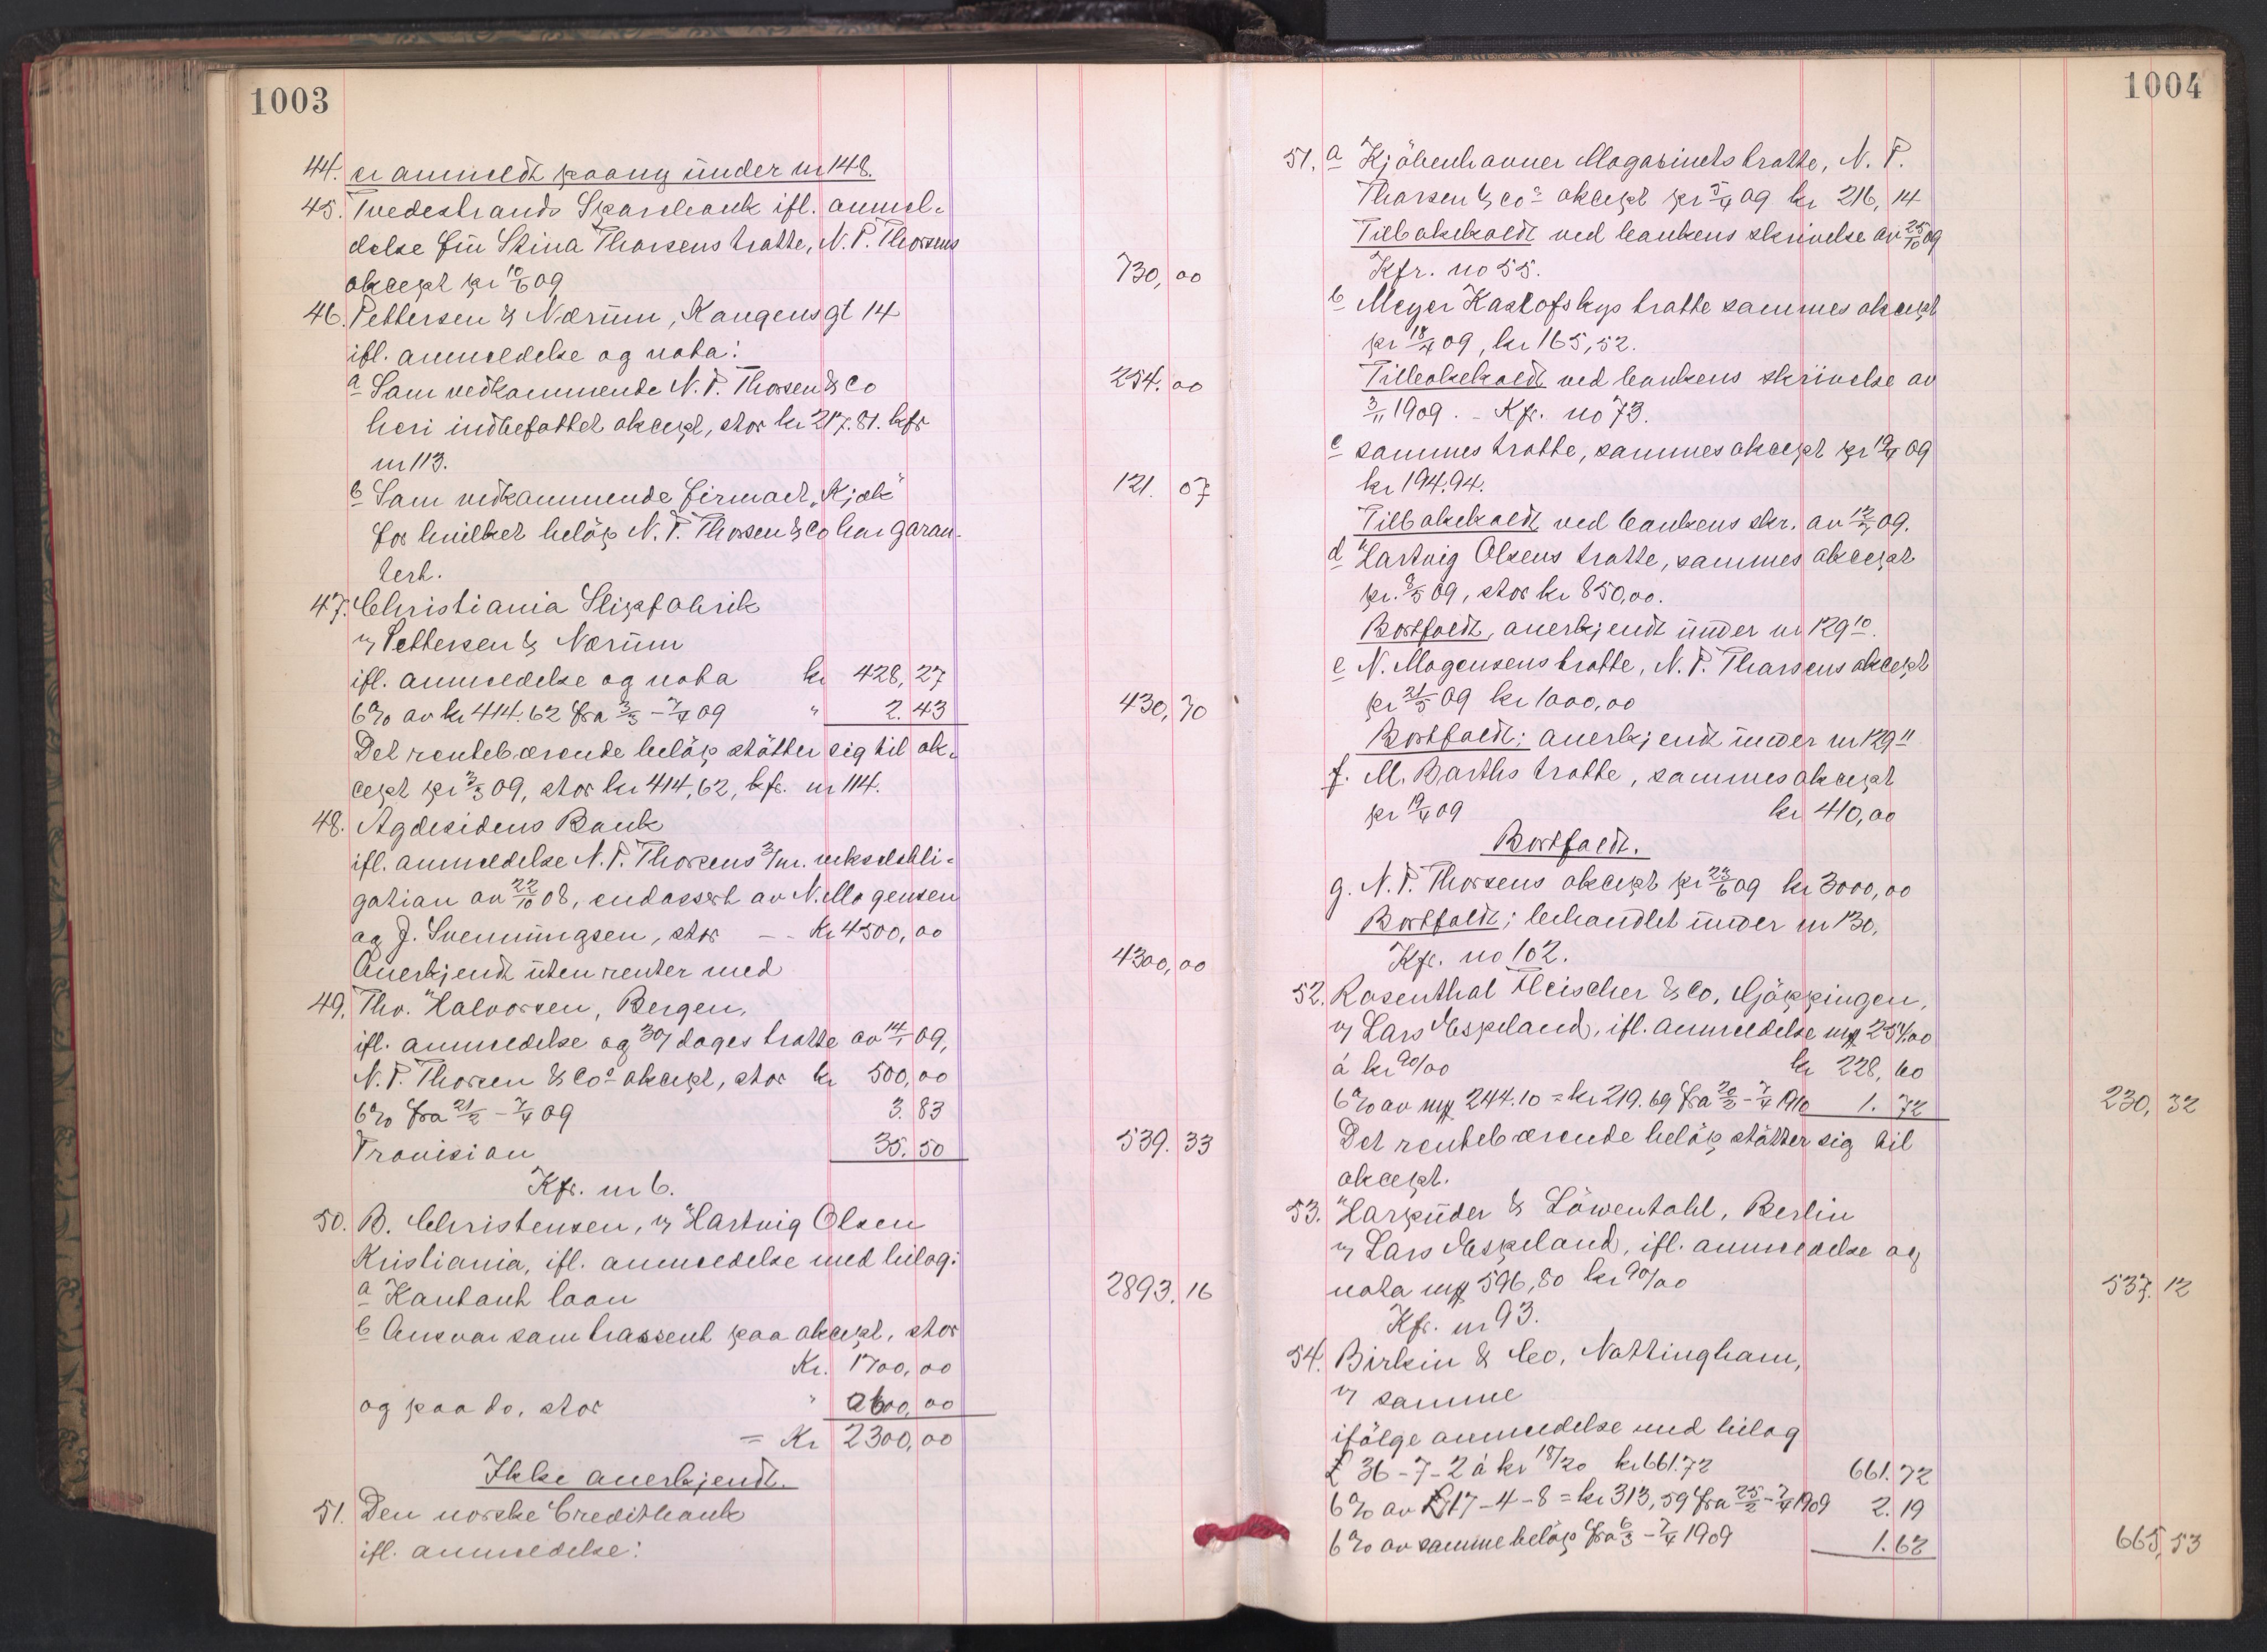 1003
44. er anmeldt paany under nr 148.
45. Tvedestrands Sparebank ifl. anmel-
delse fru Stina Thorsens tratte, N. P. Thorsens
akcept pr 10/6 09 730,00
46. Pettersen & Nærum, Kongens gt 14
ifl. anmeldelse og nota:
a Som vedkommende N. P. Thorsen & Co 254.00
heri indbefattet akcept, stor kr 217.81. kfr
nr 113.
b Som vedkommende firmaet "Kjæk" 121.07
for hvilket beløp N. P. Thorsen & Co har garan-
tert.
47. Christiania Slipsfabrik
v/ Pettersen & Nærum
ifl. anmeldelse og nota kr 428,27
6% av kr 414.62 fra 3/3 - 7/4 09 " 2.43 430,70
Det rentebærende beløp støtter sig til ak-
cept pr 3/3 09, stor kr 414,62, kfr. nr 114.
48. Agdesidens Bank
ifl. anmeldelse N. P. Thorsens 3/m. vekselobli-
gation av 22/10 08, endossert av N. Mogensen
og J. Svenningsen, stor - - Kr 4500,00
Anerkjendt uten renter med 4300,00
49. Thv. Halvorsen, Bergen,
ifl. anmeldelse og 30/ dages tratte av 14/1 09,
N. P. Thorsen & Co's akcept, stor kr 500,00
6% fra 21/2 - 7/4 09 3.83
Provision 35.50 539.33
Kfr. nr 6.
50. B. Christensen, v/ Hartvig Olsen
Kristiania, ifl. anmeldelse med bilag:
a Kontant laan 2893.16
b Ansvar som trassent paa akcept, stor
Kr. 1700,00
og paa do, stor " 600,00
= Kr 2300,00
Ikke anerkjendt.
51. Den norske Creditbank
ifl. anmeldelse:
1004
51. a Kjöbenhavner Magasinets tratte, N. P.
Thorsen & Co's akcept pr 5/4 09 kr 216,14
Tilbakekaldt ved bankens skrivelse av 25/10 09
Kfr. no 55.
b Meyer Kastofskys tratte sammes akcept
pr 18/4 09, kr 165,52.
Tilbakekaldt ved bankens skrivelse av
3/11 1909. - Kfr. no 73.
c sammes tratte, sammes akcept pr 19/4 09
kr 194.94.
Tilbakekaldt ved bankens skr. av 12/7 09.
d Hartvig Olsens tratte, sammes akcept
pr. 8/5 09, stor kr 850,00.
Bortfaldt, anerkjendt under nr 129 10.
e N. Mogensens tratte, N. P. Thorsens akcept
pr 21/5 09 kr 1000,00
Bortfaldt; anerkjendt under nr 129 11
f. M. Barths tratte, sammes akcept
pr 19/4 09 kr 410,00
Bortfaldt.
g. N. P. Thorsens akcept pr 23/6 09 kr 3000,00
Bortfaldt; behandlet under nr 130,
Kfr. no 102.
52. Rosenthal Fleischer & Co, Göppingen,
v/ Lars Espeland, ifl. anmeldelse mk 254,00
á kr 90/00 kr 228,60
6% av mk 244.10 = kr 219.69 fra 20/3 - 7/4 1910 1.72 230,32
Det rentebærende beløp støtter sig til
akcept.
53. Harpuder & Löwentahl, Berlin
v/ Lars Espeland, ifl. anmeldelse og
nota mk 596,80 kr 90/00 537.12
Kfr. nr 93.
54. Birkin & Co, Nottingham,
v/ samme
ifølge anmeldelse med bilag
£ 36-7-2 á kr 18/20 kr 661.72 661.72
6% av £ 17-4-8 = kr 313,59 fra 25/2 - 7/4 1909 2.19
6% av samme beløp fra 6/3 - 7/4 1909 1.62 665,53